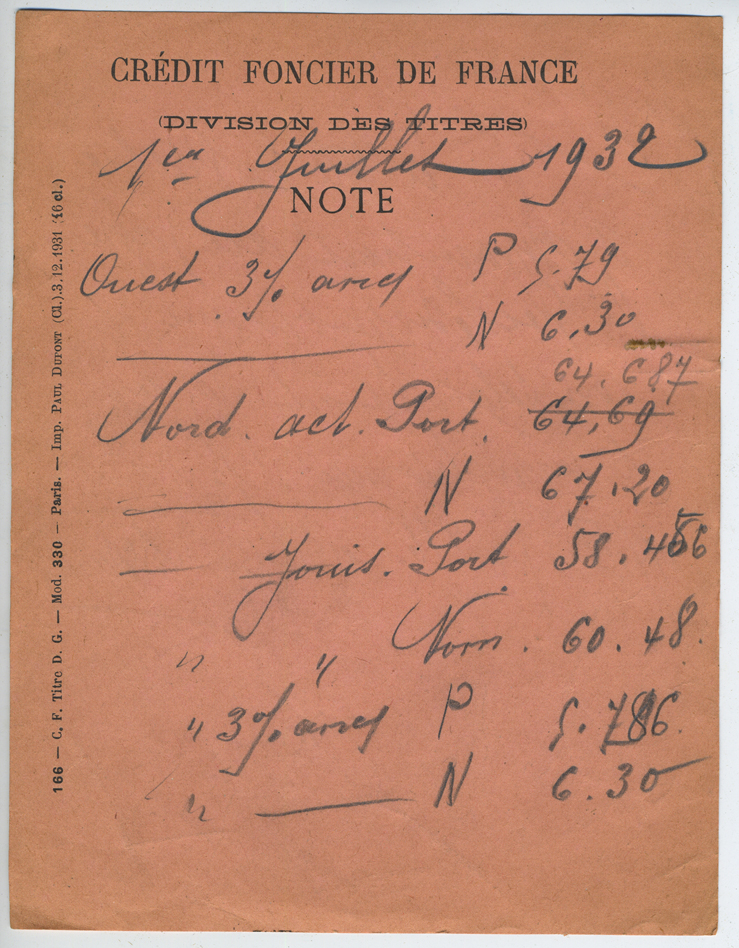 CRÉDIT FONCIER DE FRANCE
(DIVISION DES TITRES)
1er Juillet 1932
NOTE
Ouest 3% anc P 5.79
N 6.30
64.687
Nord. act. Port. 64,69
N 67.20
— Jouis. Port 58.456
" " Nom. 60.48.
" 3% anc P 5.786.
" — N 6.30
166 — C. F. Titre D. G. — Mod. 330 — Paris. — Imp. PAUL DUPONT (Cl.).3.12.1931 (46 cl.)